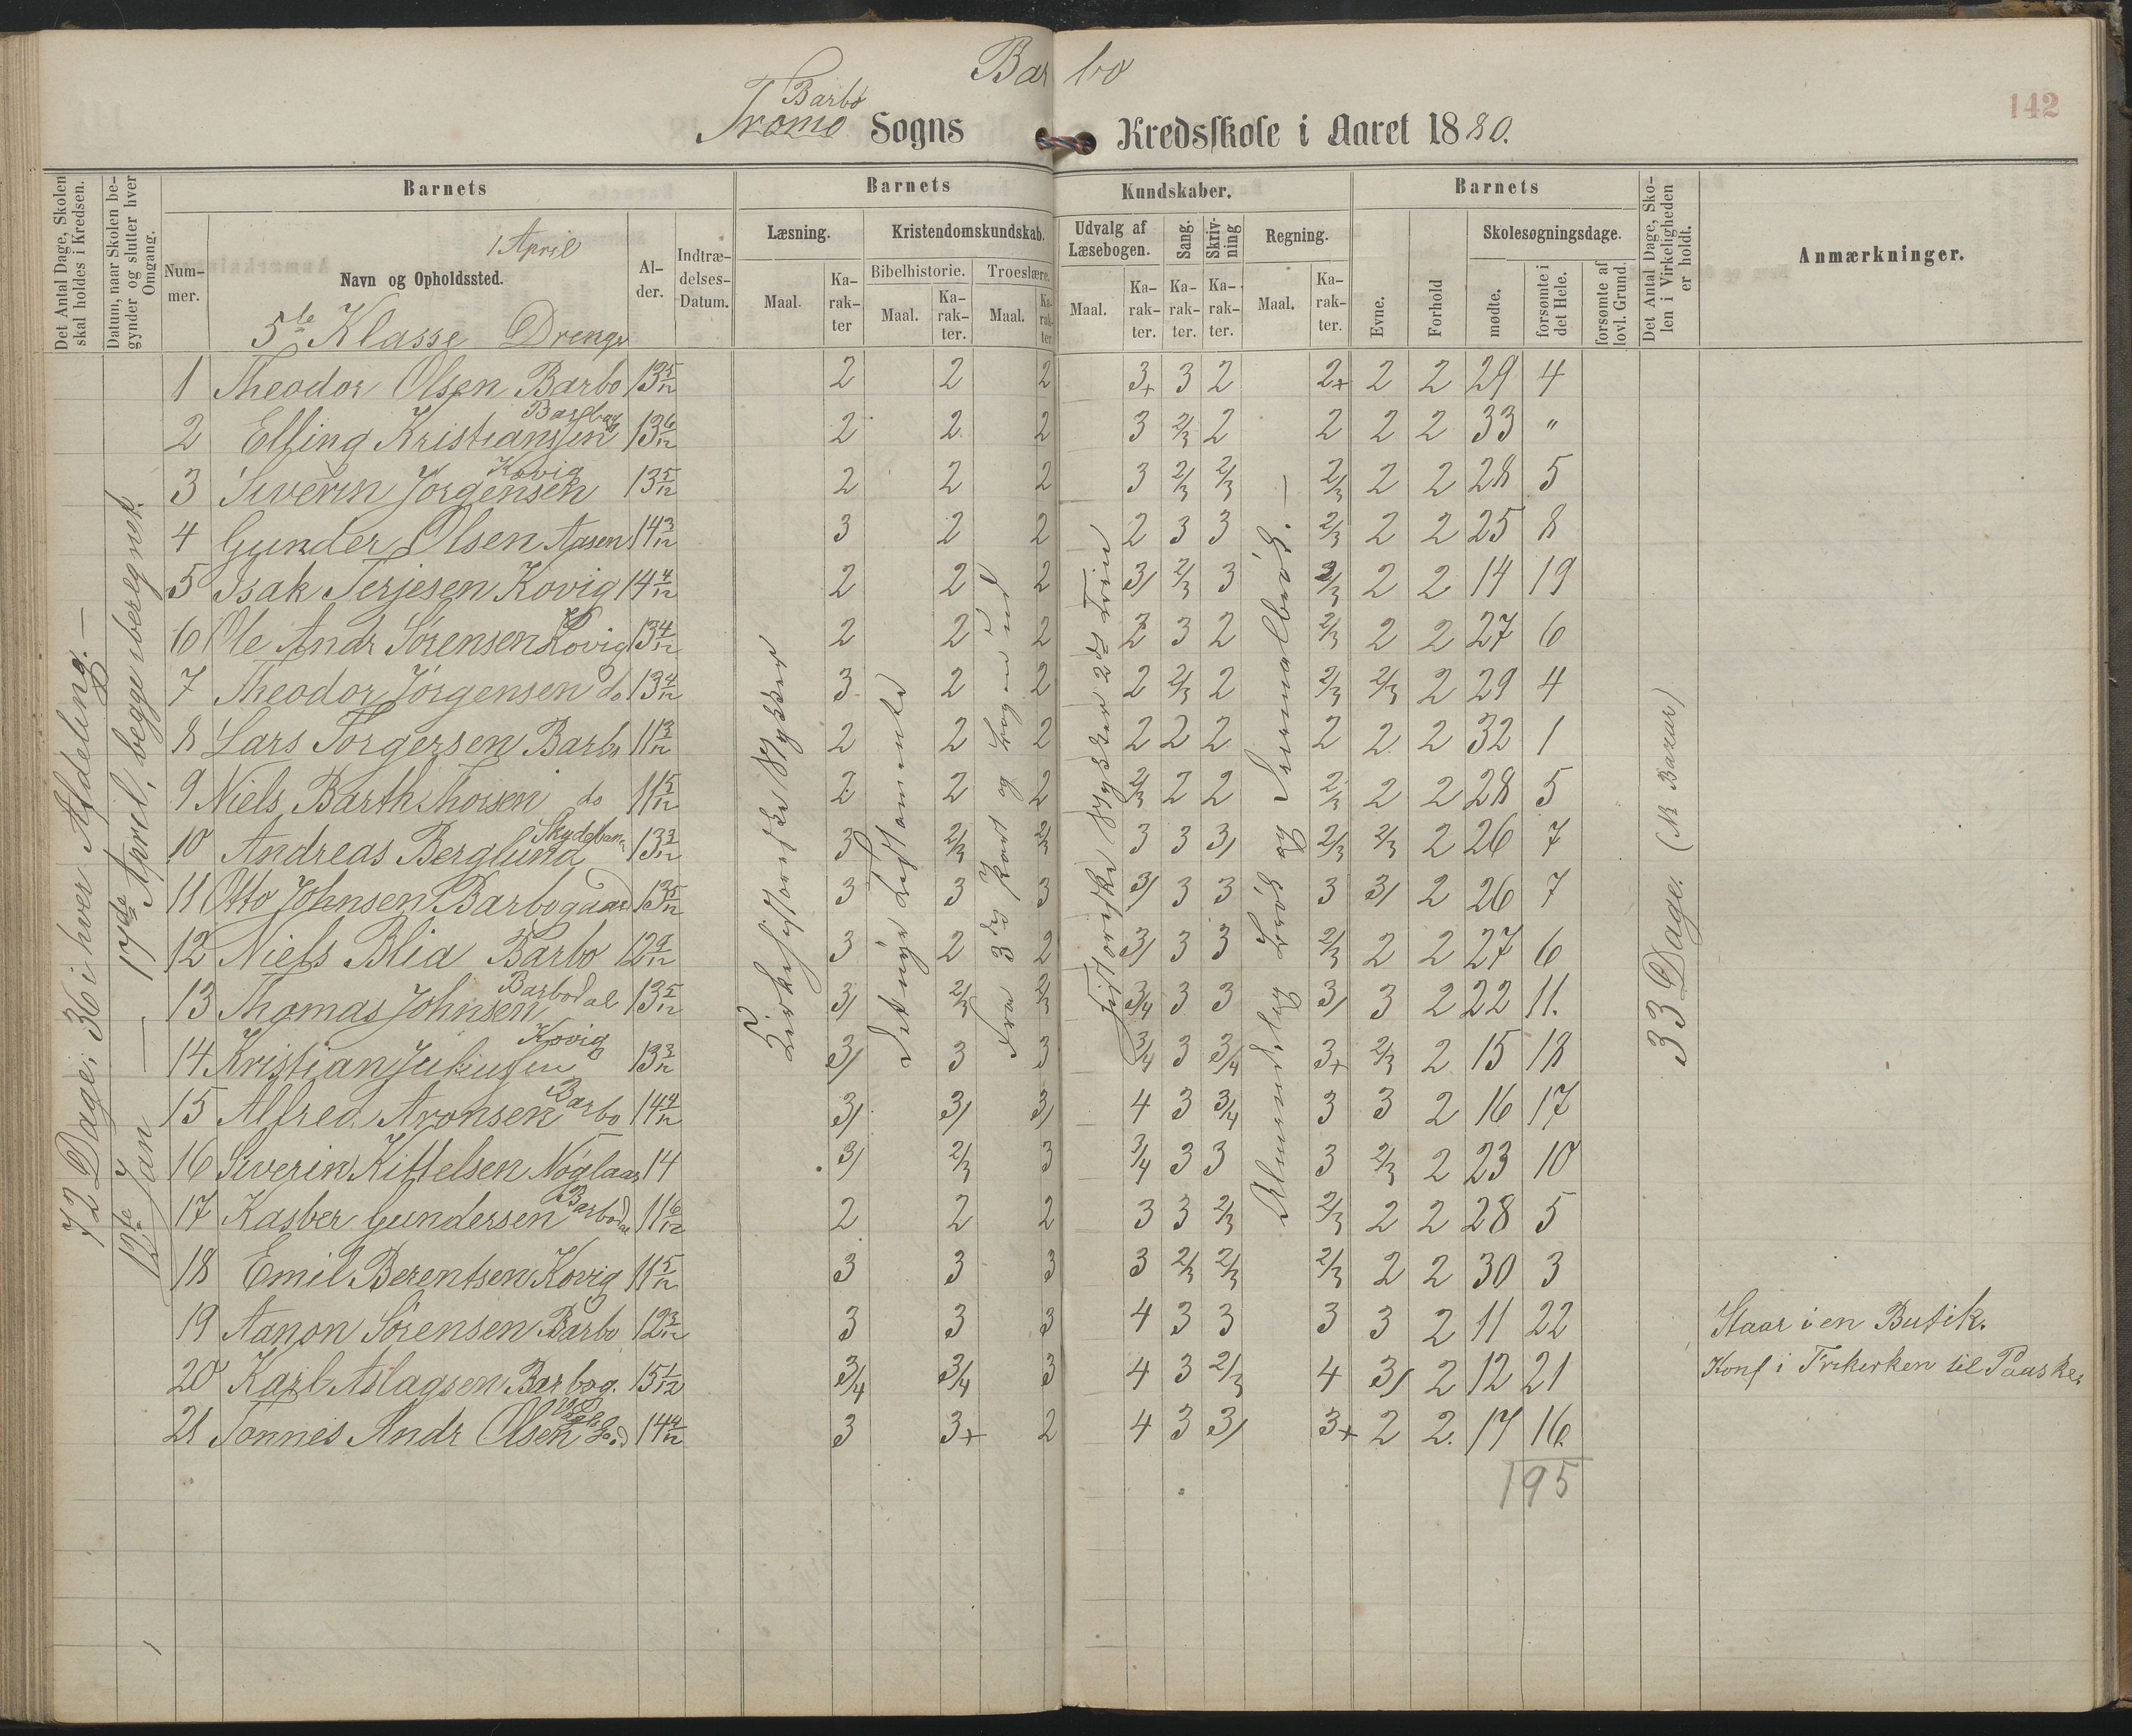 Barbo
142
Barbo
Tromø Sogns Kredsskole i Aaret 1880.
Det Antal Dage, Skolen skal holdes i Kredsen.
Datum, naar Skolen begynder og slutter hver Omgang.
Barnets
Nummer.
1 April
Navn og Opholdssted.
Alder.
Indtrædelses-Datum.
Barnets
Læsning.
Maal.
Karakter
Kristendomskundskab.
Bibelhistorie.
Maal.
Karakter.
Troeslære.
Maal.
Karakter
Kundskaber.
Udvalg af Læsebogen.
Maal.
Karakter.
Sang.
Karakter.
Skrivning
Karakter.
Regning.
Maal.
Karakter.
Barnets
Evne.
Forhold
Skolesøgningsdage.
mødte.
forsømte i det Hele.
forsømte af lovl. Grund.
Det Antal Dage, Skolen i Virkeligheden er holdt.
Anmærkninger.
5te Klasse Drenge
72 Dage; 36 i hver Afdeling.—
12te Jan — 17de April, begge iberegnet.
Kirkehistoriske Stykker
Det nye Testamente
Fra 3die Part og Bogen ud
Historiske Stykker 2det Trin
Almindelig Brøk og Decimalbrøk.—
33 Dage. (NB Bazar)
1 Theodor Olsen Barbo 13 5/12 2 2 2 3+ 3 2 2+ 2 2 29 4
2 Elling Kristiansen Barbog 13 6/12 2 2 2 3 2/3 2 2 2 2 33 "
3 Siverin Jörgensen Kovig 13 5/12 2 2 2 3 2/3 2/3 2/3 2 2 28 5
4 Gunder Olsen Aasen 14 3/12 3 2 2 2 3 3 2/3 2 2 25 8
5 Isak Terjesen Kovig 14 4/12 2 2 2 3/ 2/3 3 2/3 2 2 14 19
6 Ole Andr Sörensen Kovig 13 4/12 2 2 2 2 3 2 2/3 2 2 27 6
7 Theodor Jörgensen do 13 4/12 3 2 2 2 2/3 2 2/3 2/3 2 29 4
8 Lars Torgersen Barbo 11 3/12 2 2 2 2 2 2 2 2 2 32 1
9 Niels Barth Thorsen do 11 5/12 2 2 2 2/3 2 2 2/3 2 2 28 5
10 Andreas Berglund 13 3/12 3 2/3 2/3 3 3 3/ 2/3 2/3 2 26 7
11 Otto Johnsen Barbogaard 13 5/12 3 3 3 3/ 3 3 3 3/ 2 26 7
12 Niels Blia Barbo 12 9/12 3 2 2 3/ 3 3 2/3 2 2 27 6
13 Thomas Johnsen Barbodal 13 5/12 3/ 2/3 2/3 3/4 3 3 3/ 3 2 22 11.
14 Kristian Juliussen Kovig 13 3/12 3/ 3 3 3/4 3 3/4 3+ 2/3 2 15 18
15 Alfred Aronsen Barbo 14 4/12 3/ 3/ 3/ 4 3 3/4 3 3 2 16 17
16 Siverin Kittelsen 14 3/ 2/3 3 3/4 3 3 3 2/3 2 23 10
17 Kasber Gundersen Barbodal 11 6/12 2 2 2 3 3 2/3 2/3 2 2 28 5
18 Emil Berentsen Kovig 11 5/12 3 3 3 3 2/3 2/3 2/3 2 2 30 3
19 Aanon Sörensen Barbo 12 3/12 3 3 3 4 3 3 3 3 2 11 22 Staar i en Butik.
20 Karl Aslagsen Barbog. 15 1/12 3/4 3/4 3 4 3 2/3 4 3/ 2 12 21 Konf i Frikirken til Paaske.
21 Tönnes Andr Olsen 14 4/12 3 3+ 2 4 3 3/ 3+ 2 2. 17 16
195